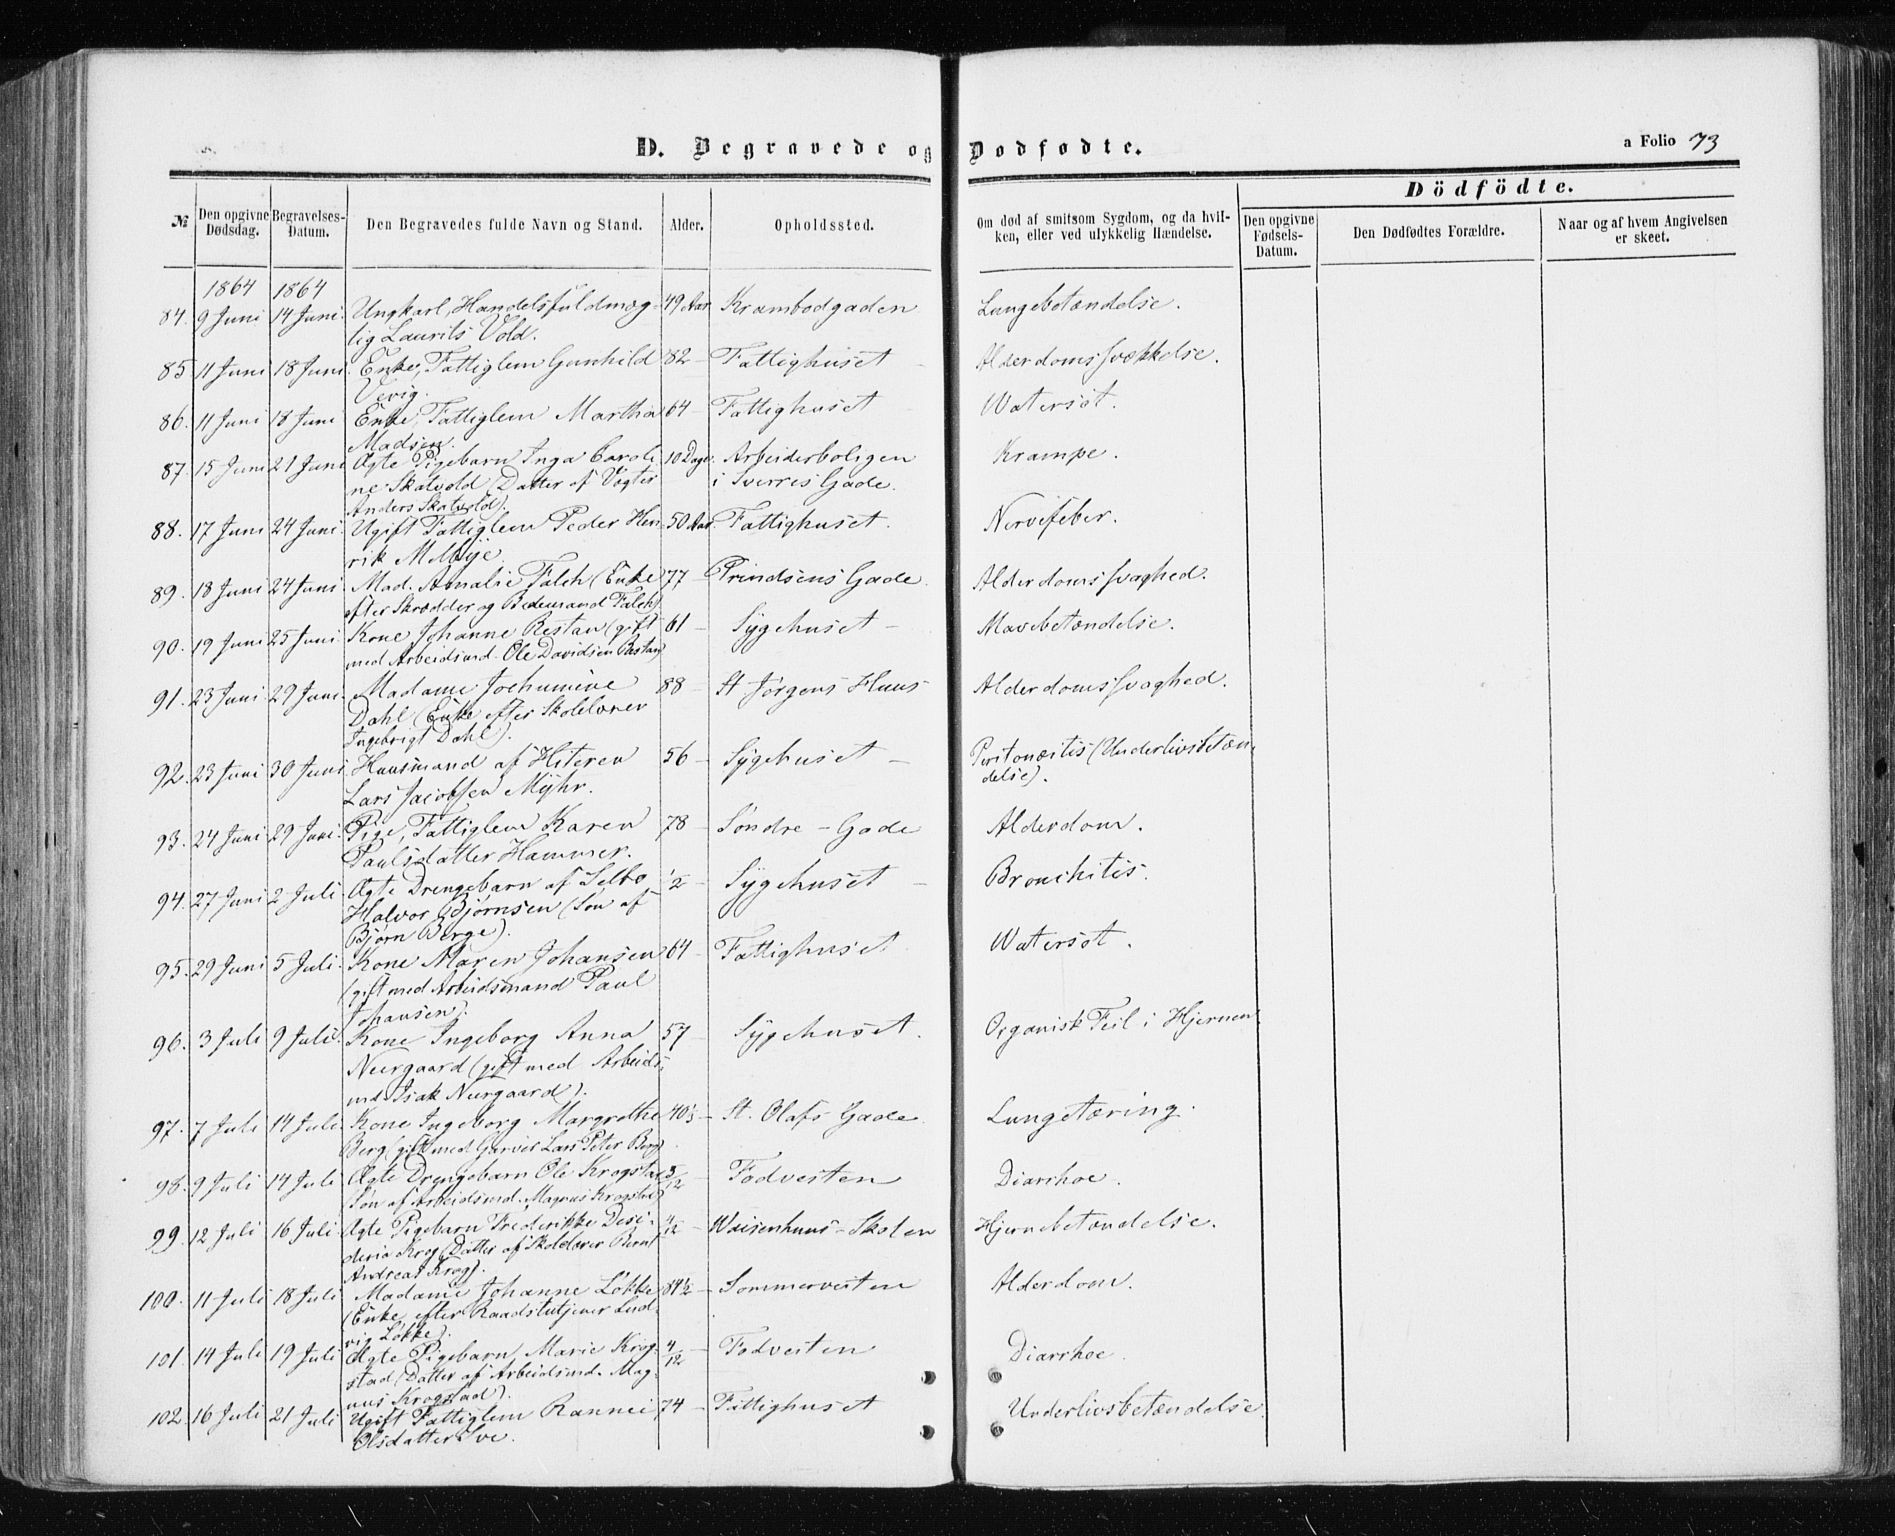 D. Begravede og Dødfødte.
a Folio 73
Dödfödte.
№ Den opgivne Dødsdag. Begravelses-Datum. Den Begravedes fulde Navn og Stand. Alder. Opholdssted. Om død af smitsom Sygdom, og da hvilken, eller ved ulykkelig Hændelse. Den opgivne Fødsels-Datum. Den Dødfødtes Forældre. Naar og af hvem Angivelsen er skeet.
1864 1864
84. 9 Juni 14 Juni. Ungkarl, Handelsfuldmæg- 49 Aar Krambodgaden Lungebetændelse.
tig Laurits Vold.
85 11 Juni 18 Juni. Enke, Fattiglem Gunhild 82 – Fattighuset – Alderdomssvækkelse.
Vevig.
86. 11 Juni 18 Juni Enke, Fattiglem Martha 64 – Fattighuset Watersot.
Madsen.
87. 15 Juni 21 Juni Ægte Pigebarn Inga Caroli- 10 Dage. Arbeiderboligen Krampe.
ne Skatvold (Datter af Vogter i Sverres Gade.
Anders Skatvold).
88. 17 Juni 24 Juni. Ugift Fattiglem Peder Hen- 50 Aar. Fattighuset. Nervefeber.
rik Melbye
89. 18 Juni 24 Juni. Mad. Amalie Falch (Enke 77 – Prindsens Gade. Alderdomssvaghed.
efter Skrædder og Bedemand Falch)
90. 19 Juni 25 Juni. Kone Johanne Restan (gift 61 – Sygehuset – Mavebetændelse.
med Arbeidsmd. Ole Davidsen Restan)
91. 23 Juni 29 Juni. Madame Jochumine 88 – St Jørgens Huus Alderdomssvaghed.
Dahl (Enke efter Skolelærer
Ingebrigt Dahl).
92. 23 Juni 30 Juni Huusmand af Hiteren 56 – Sygehuset – Peritonæitis (Underlivsbetæn-
Lars Jacobsen Myhr. delse).
93. 24 Juni 29 Juni. Pige, Fattiglem Karen 78 – Søndre – Gade Alderdom.
Paulsdatter Hammer.
94. 27 Juni 2 Juli. Ægte Drengebarn af Selbo 1/2 – Sygehuset – Bronchitis.
Halvor Bjørnsen (Søn af
Bjørn Berge).
95. 29 Juni 5 Juli. Kone Maren Johansen 64 – Fattighuset Watersot.
(gift med Arbeidsmand Paul
Johansen).
96. 3 Juli 9 Juli. Kone Ingeborg Anna 57 – Sygehuset. Organisk Feil i Hjernen
Neergaard (gift med Arbeids-
md. Isak Neergaard).
97. 7 Juli 14 Juli. Kone Ingeborg Margrethe 40½ – St. Olafs Gade Lungetæring.
Berg (gift med Garver Lars Peter Berg)
98. 9 Juli 14 Juli Ægte Drengebarn Ole Krogstad 3/12 – Fodvesten Diarrhoe.
(Søn af Arbeidsmd. Magnus Krogstad)
99. 12 Juli 16 Juli. Ægte Pigebarn Frederikke Desi- 4/12 – Waisenhuus-Skolen Hjernebetændelse.
deria Krog (Datter af Skolelærer Bernt
Andreas Krog).
100. 11 Juli 18 Juli Madame Johanne Løkke 84½ – Sommervesten Alderdom.
(Enke efter Raadstutjener Lud-
vig Løkke).
101. 14 Juli 19 Juli Ægte Pigebarn Marie Krog- 4/12 – Fodvesten Diarrhoe.
stad (Datter af Arbeidsmd. Mag-
nus Krogstad).
102. 16 Juli 21 Juli Ugift Fattiglem Rannei 74 – Fattighuset Underlivsbetændelse.
Olsdatter Ive.